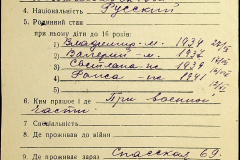 4. Національність Русский
5. Родинний стан
при ньому діти до 16 років:
1) Владимир - м. 1934
2) Валерий - м. 1936
3) Светлана - ж. 1939
4) Раиса - ж. 1941
6. Ким працює і де При военной
части.
7. Спеціяльність
8. Де проживав до війни
9. Де проживає зараз Спасская 69.